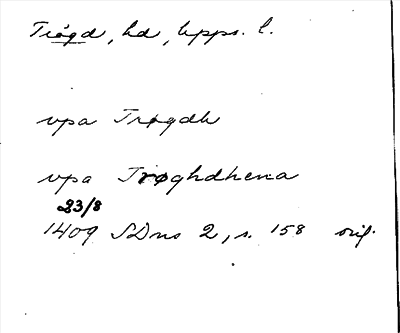 Trögd, hd, Upps. l.
vpa Trøgdh
vpa Trøghdhena
23/8
1409 SDns 2, s. 158 orig.